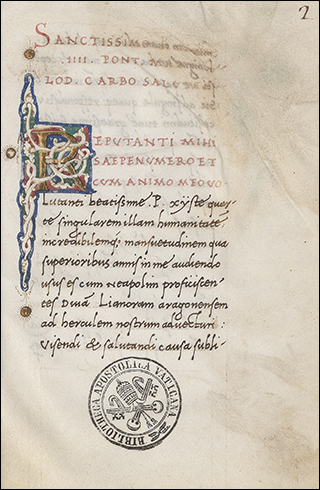 2
SANCTISSIM
IIII. PONT.
LOD. CARBO SAL
REPUTANTI MIHI
SAEPENUMERO ET
CUM ANIMO MEO VO
Lutanti beatissime .P. xyste quor
te singularem illam humanitatē
incredibilemq; mansuetudinem qua
superioribus annis in me audiendo
usus es cum Neapolim proficiscen
tes Divā Lianoram aragonensem
ad herculem nostrum advecturi:
Visendi & salutandi causa subli-
BIBLIOTHECA APOSTOLICA VATICANA